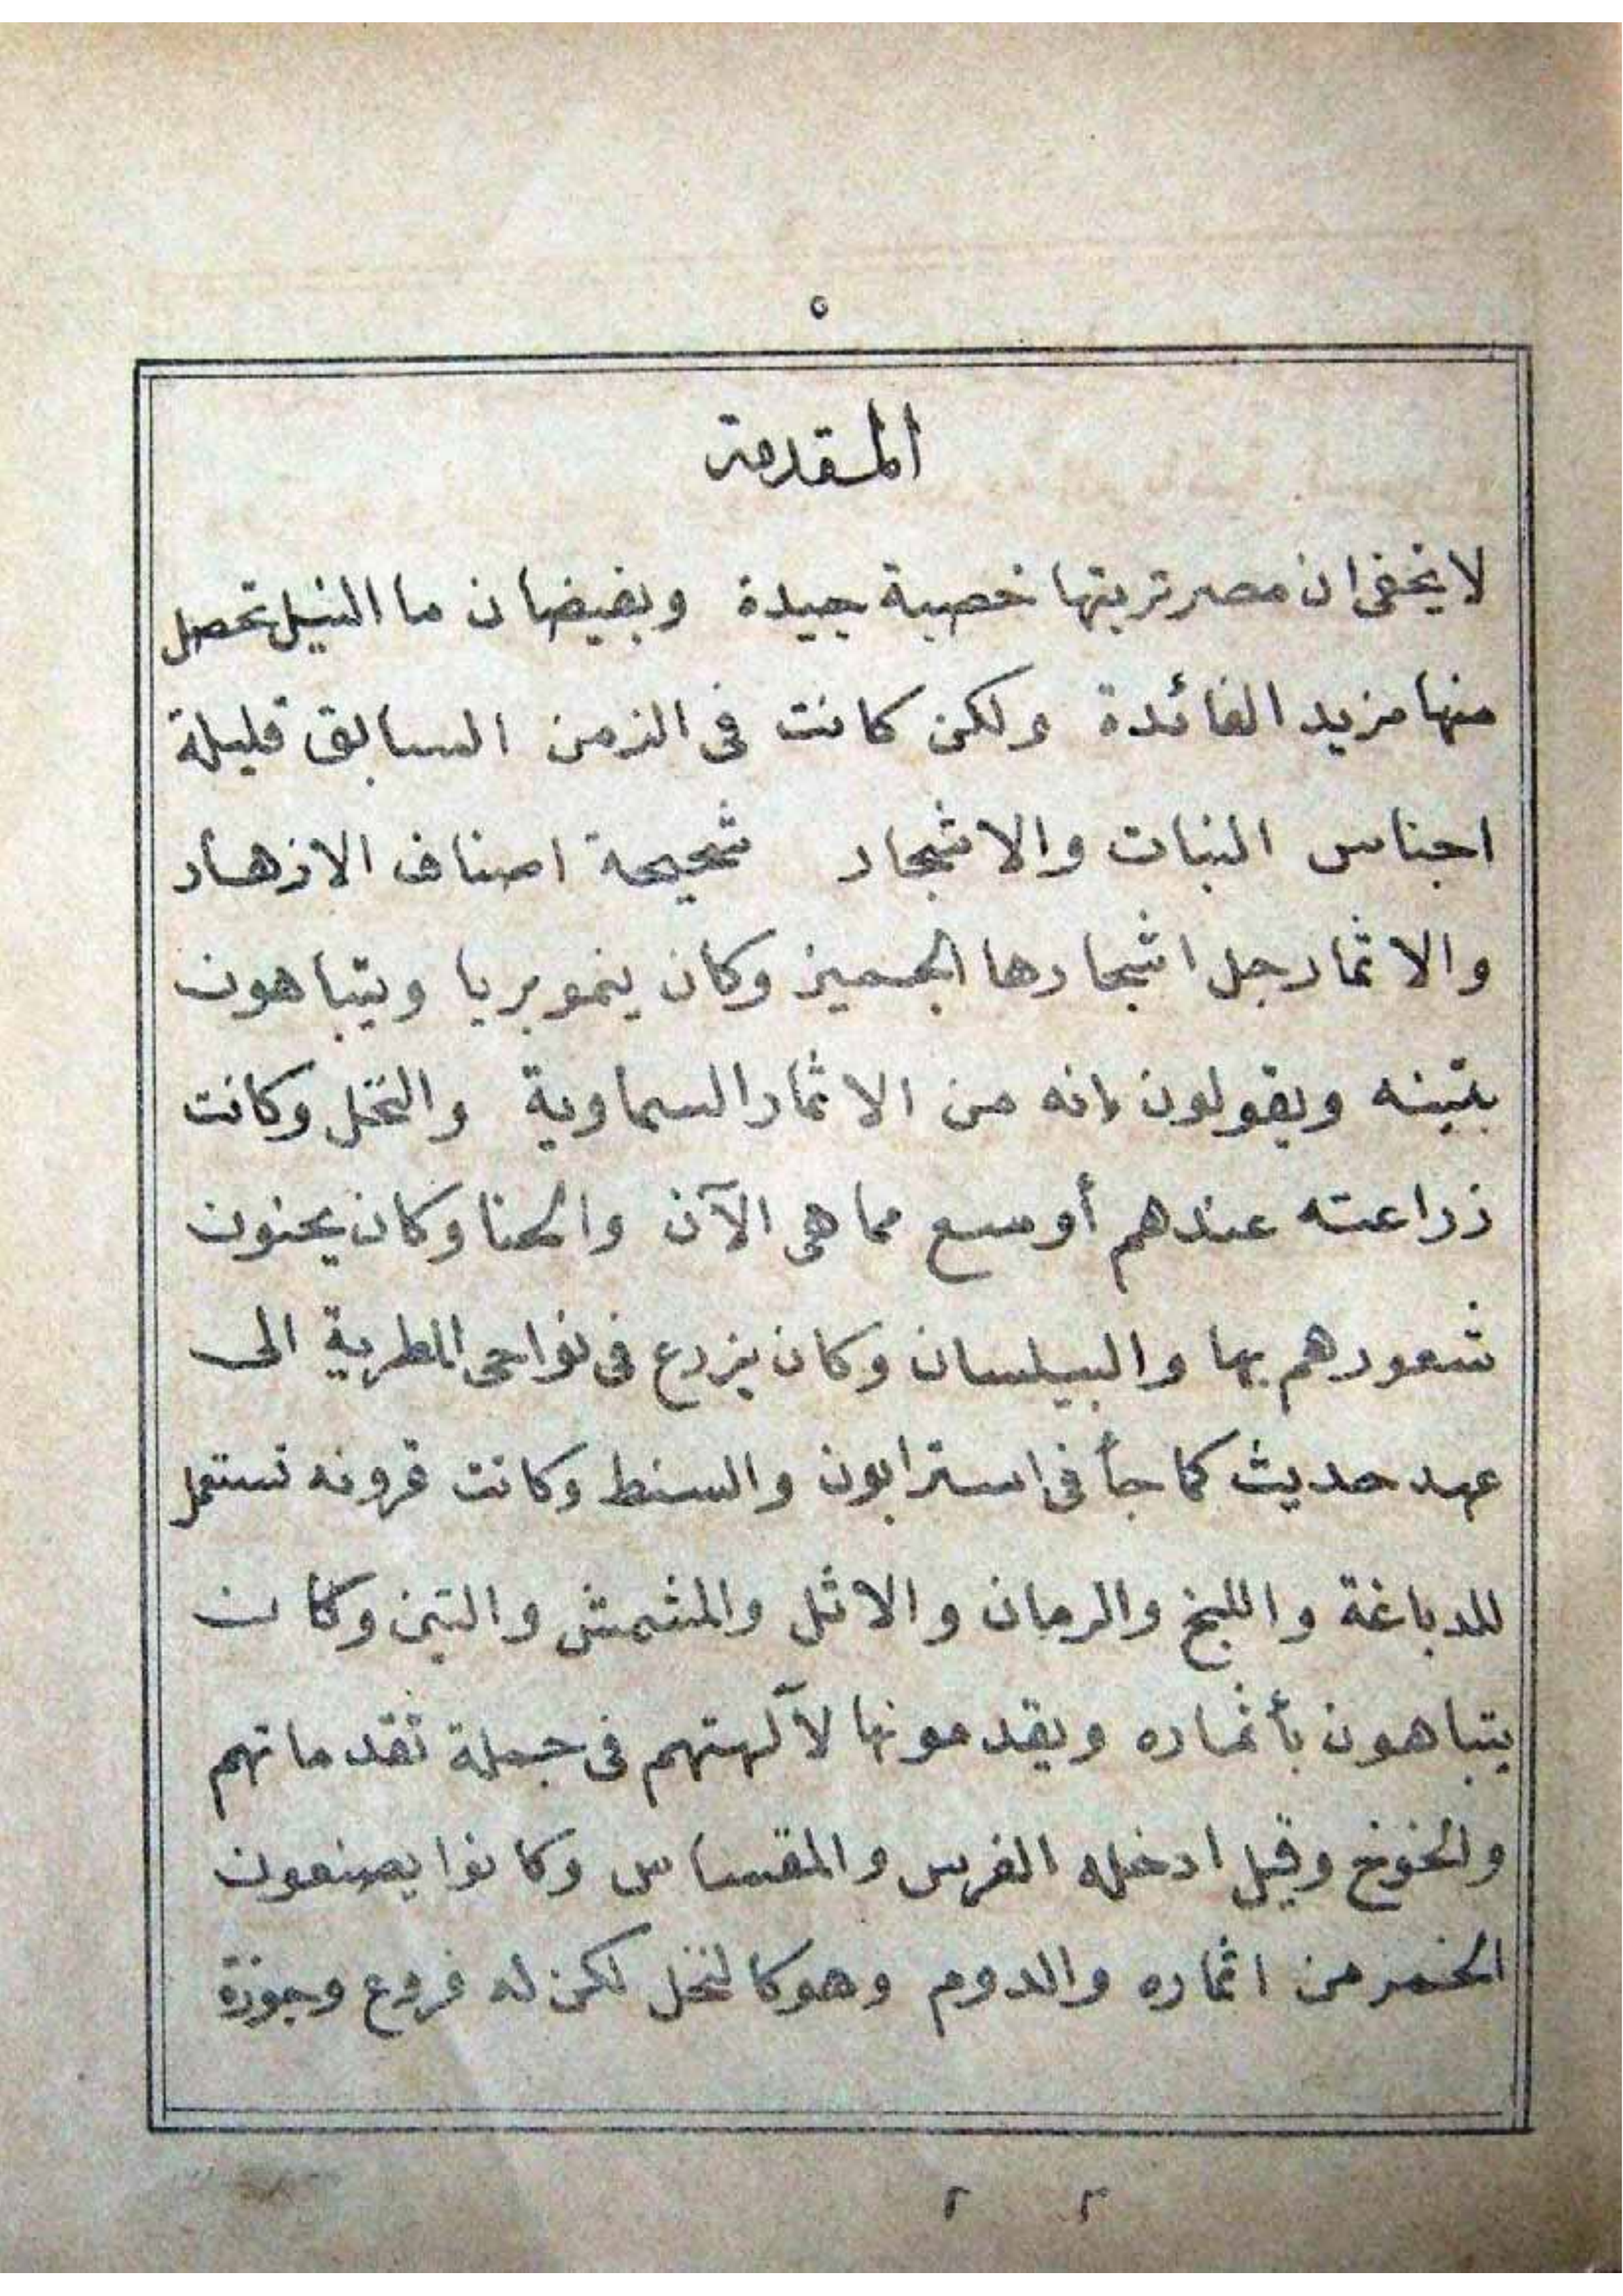 ٥
المقدمة
لايخفى ان مصر تربتها خصبة جيدة وبفيضان ما النيل تحصل
منها مزيد الفائدة ولكن كانت فى الزمن السابق قليلة
اجناس النبات والاشجار شحيحة اصناف الازهار
والاثمار جل اشجارها الجميز وكان ينمو بريا ويتباهون
بتينه ويقولون انه من الاثمار السماوية والنخل وكانت
زراعته عندهم أوسع مما هى الآن والحنا وكان يحنون
شعورهم بها والبيلسان وكان يزرع فى نواحى المطرية الى
عهد حديث كما جأ فى استرابون والسنط وكانت قرونه تستعمل
للدباغة واللبخ والرمان والاثل والمشمش والتين وكان
يتباهون بأثماره ويقدمونها لآلهتهم فى جملة تقدماتهم
والخوخ وقيل ادخله الفرس والمقساس وكانوا يصنعون
الخمر من اثماره والدوم وهو كالنخل لكن له فروع وجوزة
٢ ٢